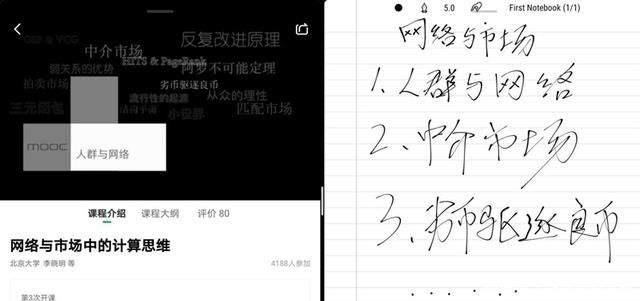 GSP & VCG
反复改进原理
中介市场
HITS & PageRank
弱关系的优势
阿罗不可能定理
拍卖市场
劣币驱逐良币
流行性的起源
从众的理性
三元闭包
小世界
匹配市场
MOOC
人群与网络
课程介绍 课程大纲 评价 80
网络与市场中的计算思维
北京大学 李晓明 等
4188人参加
第3次开课
5.0
First Notebook (1/1)
网络与市场
1、人群与网络
2、中介市场
3、劣币驱逐良币
......